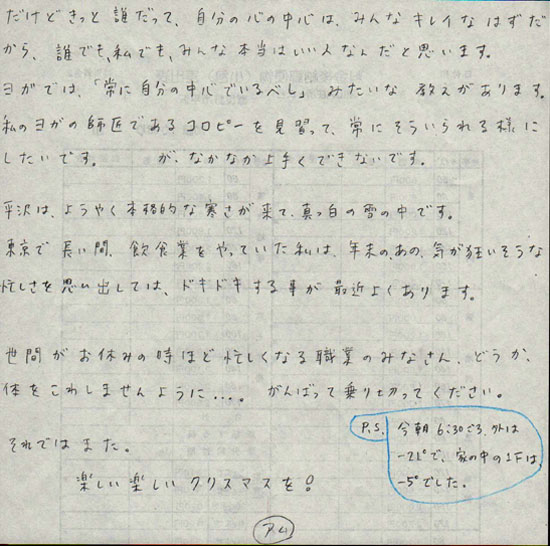 だけどきっと誰だって、自分の心の中心は、みんなキレイなはずだ
から、誰でも、私でも、みんな本当はいい人なんだと思います。
ヨガでは、「常に自分の中心でいるべし」みたいな教えがあります。
私のヨガの師匠であるコロピーを見習って、常にそういられる様に
したいです。 が、なかなか上手くできないです。
平沢は、ようやく本格的な寒さが来て、真っ白の雪の中です。
東京で長い間、飲食業をやっていた私は、年末の、あの、気が狂いそうな
忙しさを思い出しては、ドキドキする事が最近よくあります。
世間がお休みの時ほど忙しくなる職業のみなさん、どうか、
体をこわしませんように...。 がんばって乗り切ってください。
それではまた。
楽しい楽しいクリスマスを!
P.S.
今朝6:30ごろ、外は
-21°で、家の中の1Fは
-5°でした。
アム